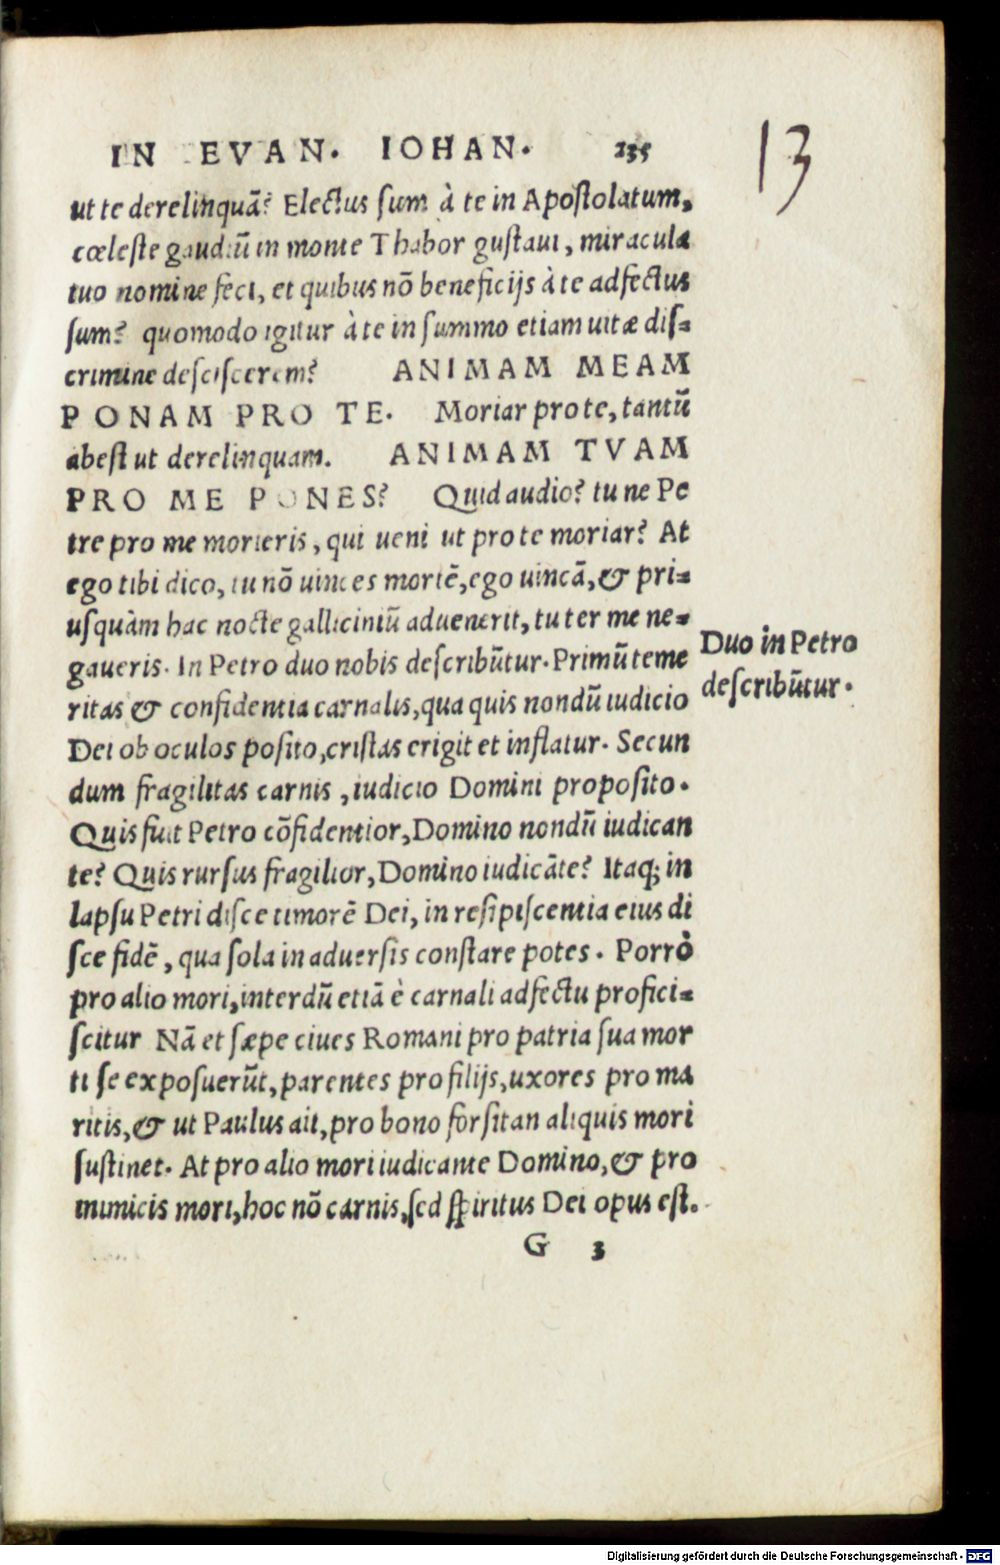 IN EVAN. IOHAN. 235
13
ut te derelinquã? Electus sum à te in Apostolatum,
cœleste gaudiũ in monte Thabor gustaui, miracula
tuo nomine feci, et quibus nõ beneficijs à te adfectus
sum? quomodo igitur à te in summo etiam uitæ dis=
crimine desciscerem? ANIMAM MEAM
PONAM PRO TE. Moriar pro te, tantũ
abest ut derelinquam. ANIMAM TVAM
PRO ME PONES? Quid audio? tu ne Pe
tre pro me morieris, qui ueni ut pro te moriar? At
ego tibi dico, tu nõ uinces mortẽ, ego uincã, & pri=
usquàm hac nocte galliciniũ aduenerit, tu ter me ne=
gaueris. In Petro duo nobis describũtur. Primũ teme
ritas & confidentia carnalis, qua quis nondũ iudicio
Dei ob oculos posito, cristas erigit et inflatur. Secun
dum fragilitas carnis, iudicio Domini proposito.
Quis fuit Petro cõfidentior, Domino nondũ iudican
te? Quis rursus fragilior, Domino iudicãte? Itaq; in
lapsu Petri disce timorẽ Dei, in resipiscentia eius di
sce fidẽ, qua sola in aduersis constare potes. Porrò
pro alio mori, interdũ etiã è carnali adfectu profici=
scitur Nã et sæpe ciues Romani pro patria sua mor
ti se exposuerũt, parentes pro filijs, uxores pro ma
ritis, & ut Paulus ait, pro bono forsitan aliquis mori
sustinet. At pro alio mori iudicante Domino, & pro
inimicis mori, hoc nõ carnis, sed spiritus Dei opus est.
G 3
Duo in Petro
describũtur.
Digitalisierung gefördert durch die Deutsche Forschungsgemeinschaft - DFG